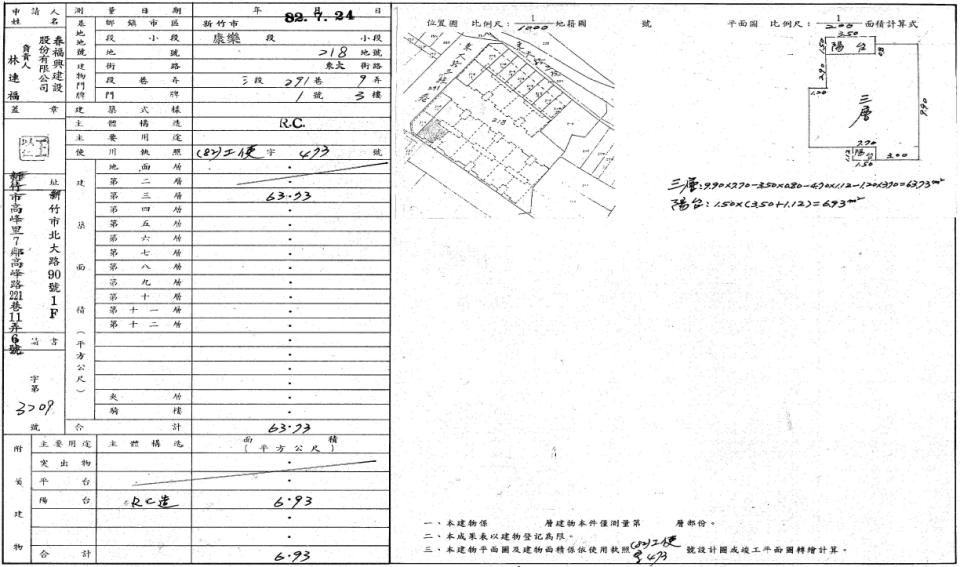 申請人 姓名
春福興建設
股份有限公司
負責人
林連福
蓋章
住址
新竹市高峰里7鄰高峰路221巷11弄6號
新竹市北大路90號1F
字第
3209
號
測量日期 年 82.7.24 日
鄉鎮市區 新竹市
段 小段 康樂 段 小段
地號 218 地號
街路 東大 街路
段巷弄 三段 291巷 9弄
門牌 1號 3樓
建築式樣
主體構造 R.C.
主要用途
使用執照 (82)工使 字 473 號
建築面積(平方公尺)
地面層
第二層
第三層 63.73
第四層
第五層
第六層
第七層
第八層
第九層
第十層
第十一層
第十二層
夾層
騎樓
合計 63.73
附屬建物
主要用途 主體構造 面積
(平方公尺)
突出物
平台
陽台 RC造 6.93
合計 6.93
位置圖 比例尺: 1/1000 地籍圖 號 平面圖 比例尺: 1/200 面積計算式
218
291
巷
3.50
1.50
陽台
.80
2.90
1.20
三層
9.90
7.70
陽台
1.12
1.50
3.00
三層:9.90×7.70-3.50×0.80-4.70×1.12-1.20×3.70=63.73m²
陽台:1.50×(3.50+1.12)=6.93m²
一、本建物係 層建物本件僅測量第 層部份。
二、本成果表以建物登記為限。
三、本建物平面圖及建物面積係依使用執照 (82)工使 字 473 號設計圖或竣工平面圖轉繪計算。